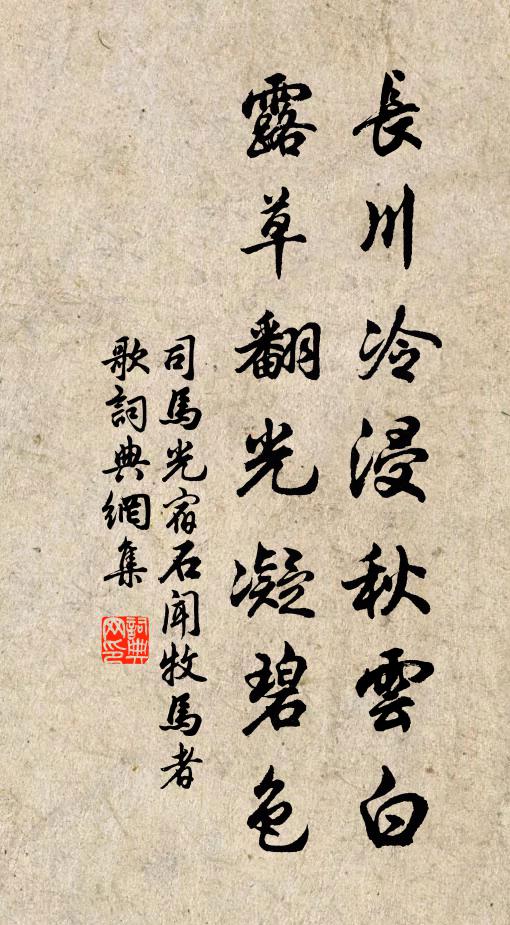 長川冷浸秋雲白
露草翻光凝碧色
司馬光宿石閣聞牧馬者
歌詞典網集
詞典網印